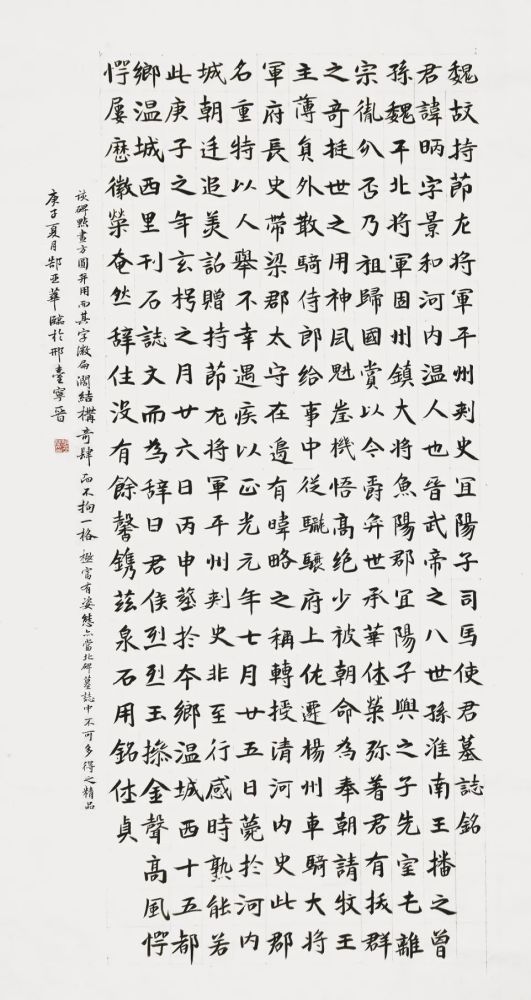 魏故持節左將軍平州刺史宜陽子司馬使君墓誌銘
君諱昞字景和河内温人也晉武帝之八世孫淮南王播之曾
孫魏平北將軍固州鎮大將魚陽郡宜陽子興之子先室屯離
宗胤分否乃祖歸國賞以今爵弈世承華休榮弥著君有拔群
之奇挺世之用神風魁崖機悟高絶少被朝命為奉朝請牧王
主薄員外散騎侍郎給事中從驪驤府上佐遷楊州車騎大將
軍府長史帶梁郡太守在邉有暐略之稱轉授清河内史此郡
名重特以人舉不幸遇疾以正光元年七月廿五日薨於河内
城朝廷追美詔贈持節左將軍平州刺史非至行感時熟能若
此庚子之年玄枵之月廿六日丙申塟於本鄉温城西十五都
鄉温城西里刊石誌文而為辭曰君侯烈烈玉操金聲高風愕
愕屢歷徽榮奄然辭住没有餘馨鐫兹泉石用銘休貞
该碑點畫方圓并用而其字微扁濶結構奇肆而不拘一格極富有姿態亦當北碑墓誌中不可多得之精品
庚子夏月郜亚華臨於邢臺寧晉